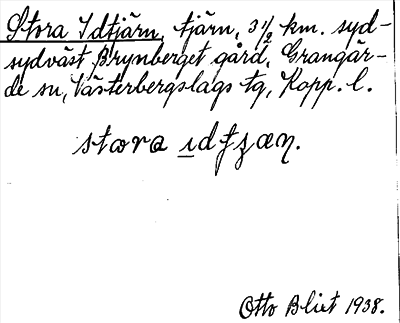 Stora Idtjärn, tjärn, 3 1/2 km. syd-
sydväst Brynberget gård, Grangär-
de sn, Västerbergslags tg, Kopp. l.
stora idtʒæn.
Otto Blixt 1938.